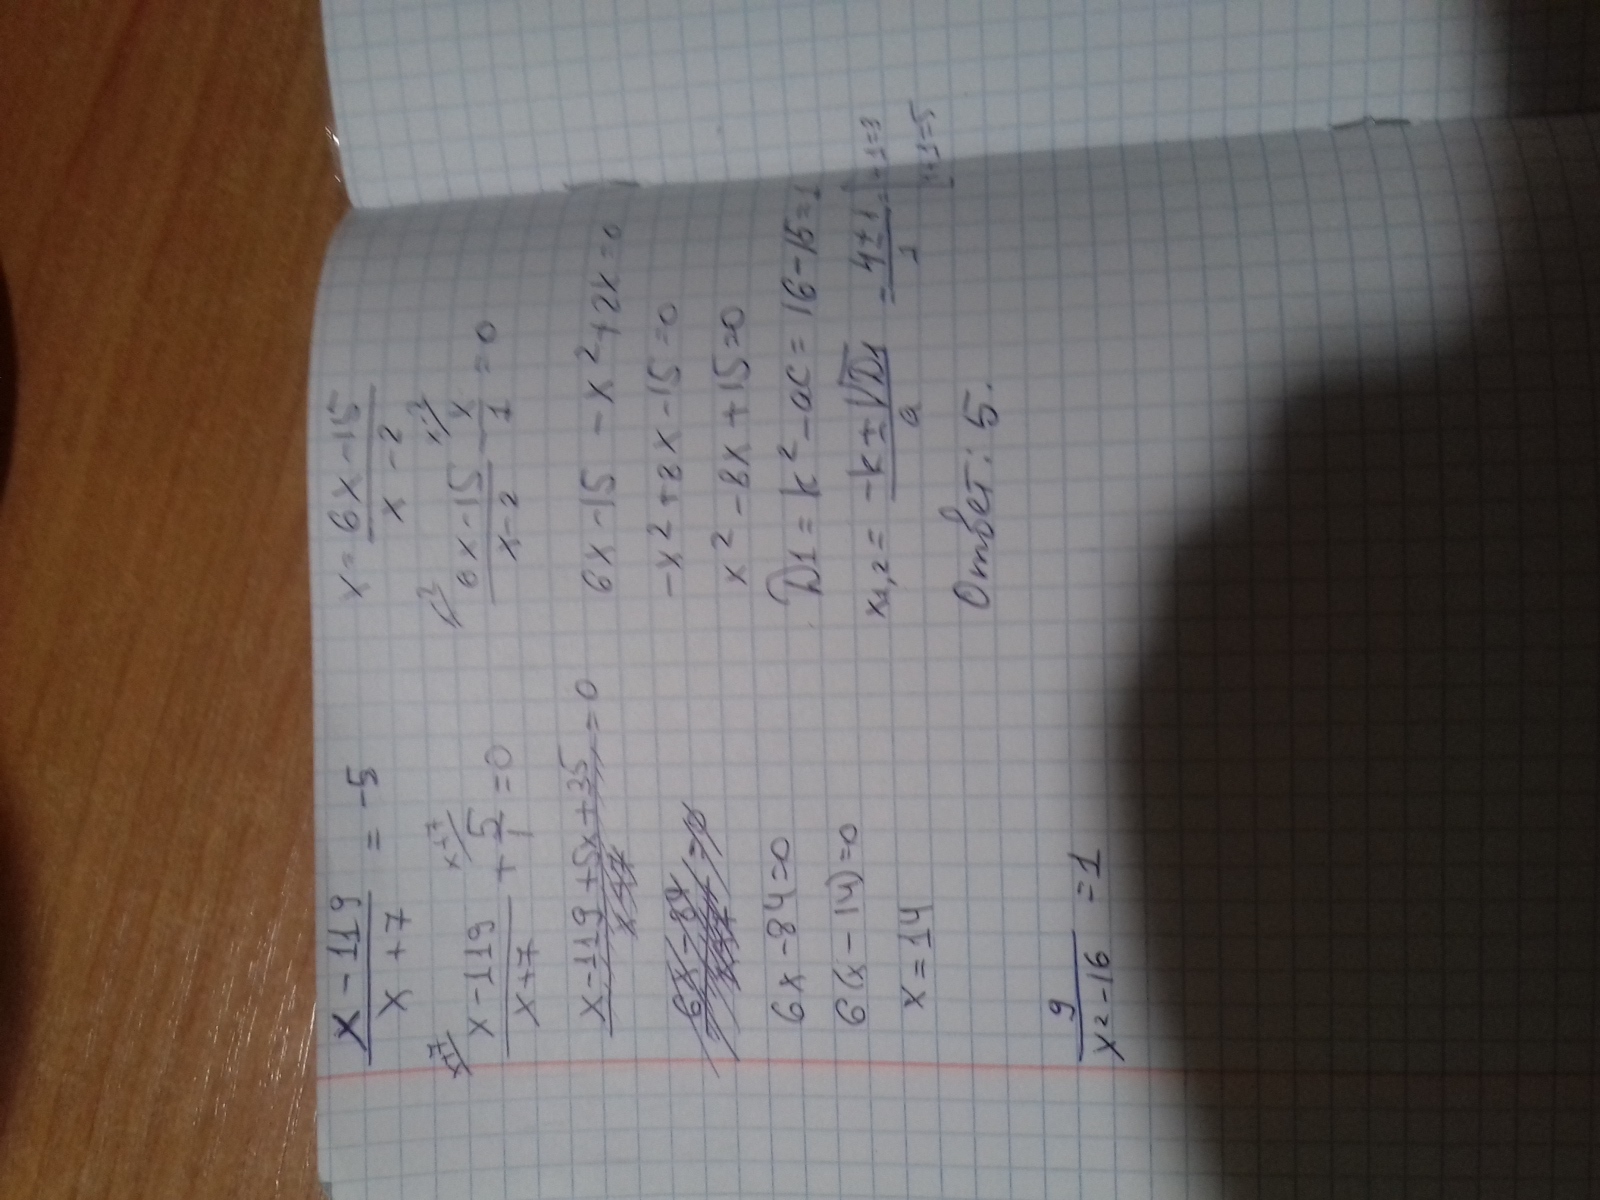 x-119/x+7 = -5
x+7/ x-119/x+7 + x+7/ 5/1 = 0
x-119+5x+35 = 0
6x-84
6x-84=0
6(x-14)=0
x=14
9/x²-16 = 1
x = 6x-15/x-2
6x-15/x-2 - x/1 = 0
6x-15-x²+2x=0
-x²+8x-15=0
x²-8x+15=0
D1 = k²-ac = 16-15=1
x1,2 = -k±√D1/a -4±1/1 = -1=3
+1=5
Ответ: 5.